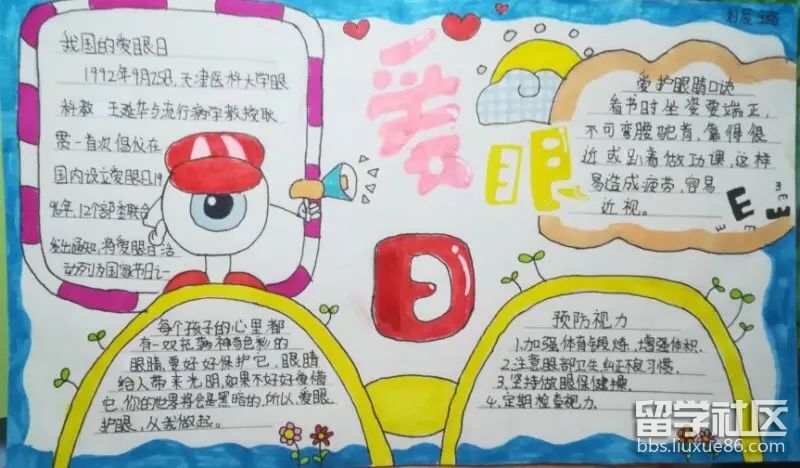 我国的爱眼日
1992年9月25日,天津医科大学眼
科教 王延华与流行病学教授耿
贯一首次倡仪在
国内设立爱眼日,19
96年,12个部委联合
发出通知,将爱眼日活
动列为国家节日之一
爱
眼
日
爱护眼睛口诀
看书时坐姿要端正,
不可弯腰驼背,靠得很
近或趴着做功课,这样
易造成疲劳,容易
近视。
E
E
E
m
E
每个孩子的心里都
有一双充满神奇色彩的
眼睛,要好好保护它,眼睛
给人带来光明,如果不好好爱惜
它,你的世界将会是黑暗的,所以,爱眼
护眼,从我做起。
预防视力
1.加强体育锻炼,增强体积.
2.注意眼部卫生,纠正不良习惯.
3.坚持做眼保健操.
4.定期检查视力.
留学社区
bbs.liuxue86.com